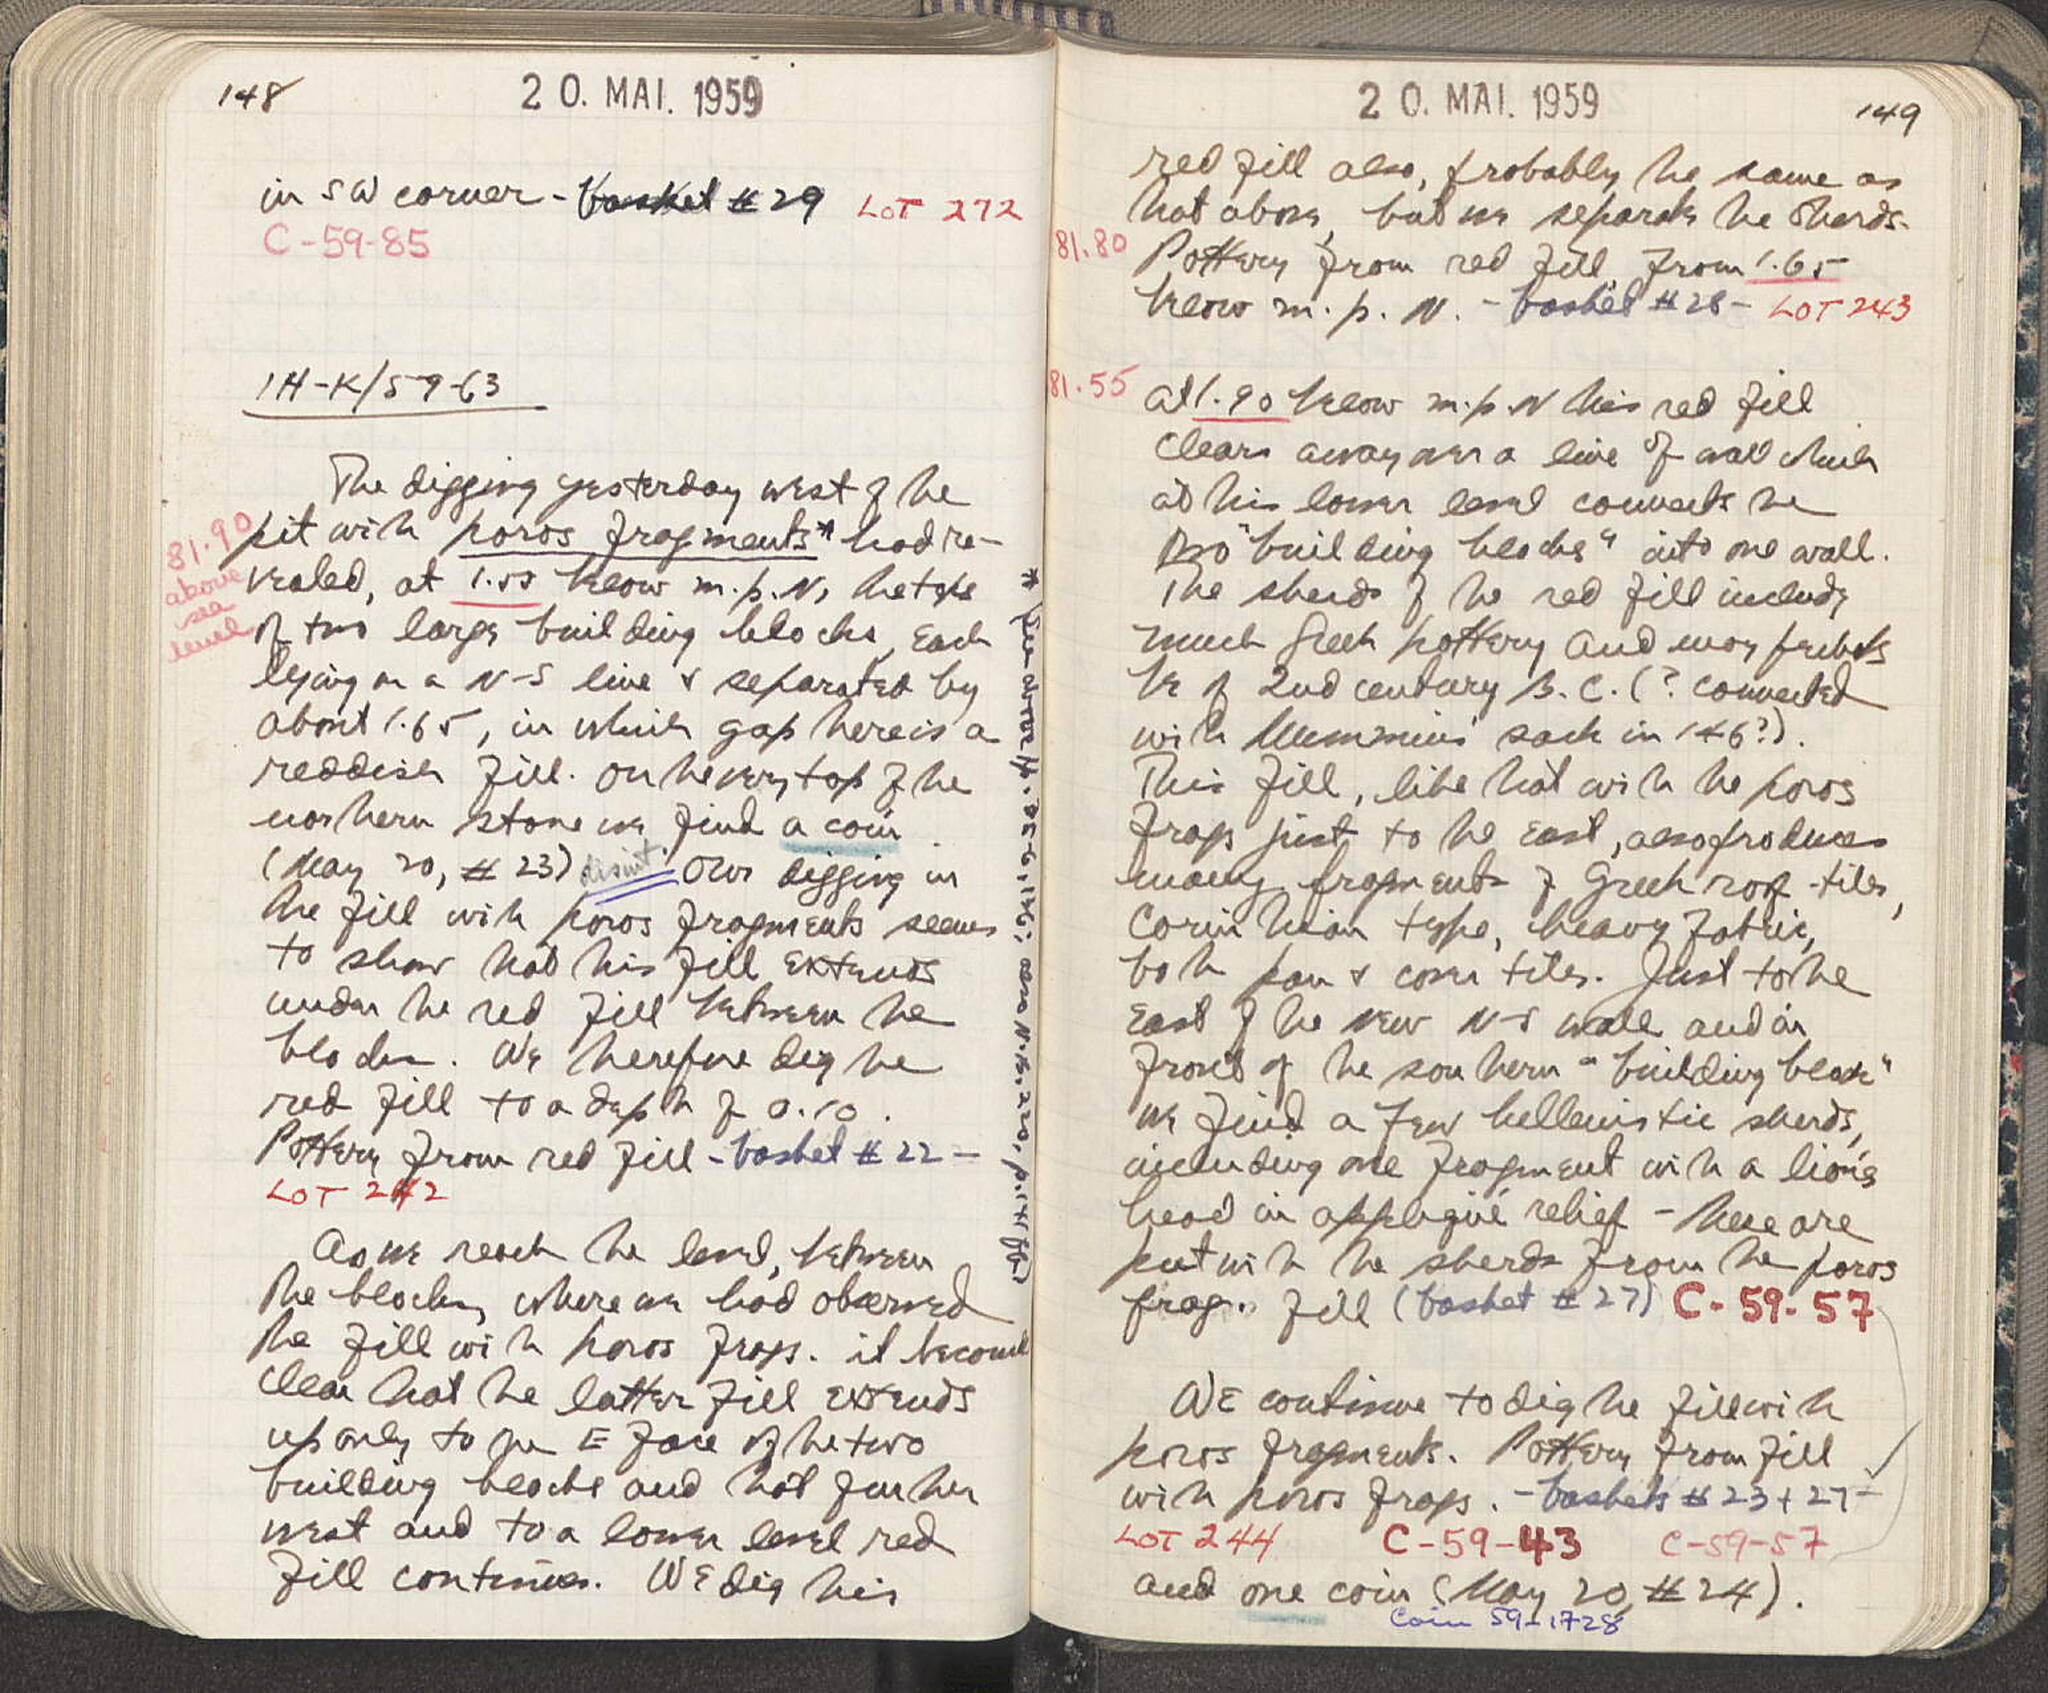 148
20. MAI. 1959
in SW corner - basket #29 LOT 272
C-59-85
1H-K/59-63
The digging yesterday west of the
pit with poros fragments* had re-
vealed, at 1.55 below m.p. N, the tops
81.90
above
sea
level
of two large building blocks, each
lying on a N-S line & separated by
about 1.65, in which gap there is a
reddish fill. On the very top of the
northern stone we find a coin
(May 20, #23) disint. Our digging in
the fill with poros fragments seems
to show that this fill extends
under the red fill between the
blocks. We therefore dig the
red fill to a depth of 0.10.
Pottery from red fill - basket #22 -
LOT 242
As we reach the level, between
the blocks, where we had observed
the fill with poros frags. it became
clear that the latter fill extends
up only to the E face of the two
building blocks and not further
west and to a lower level red
fill continues. We dig this
* (See above pp. 146; also N.B. 220, p. 141 ff.)
20. MAI. 1959
149
red fill also, probably the same as
that above, but we separate the sherds.
81.80
Pottery from red fill from 1.65
below m.p. N. - basket #28 - LOT 243
81.55
At 1.90 below m.p. N this red fill
clears away over a line of wall which
at this lower level connects the
two "building blocks" into one wall.
The sherds of the red fill include
much Greek pottery and may perhaps
be of 2nd century B.C. (? connected
with Mummius' sack in 146?).
This fill, like that with the poros
frags just to the east, also produces
many fragments of Greek roof-tiles,
Corinthian type, heavy fabric,
both pan & cover tiles. Just to the
east of the new N-S wall and in
front of the southern "building block"
we find a few hellenistic sherds,
including one fragment with a lion's
head in appliqué relief - these are
put with the sherds from the poros
frag. fill (basket #27) C-59-57
We continue to dig the fill with
poros fragments. Pottery from fill
with poros frags. - baskets #23 + 27 -
LOT 244 C-59-43 C-59-57
and one coin (May 20, #24).
Coin 59-1728